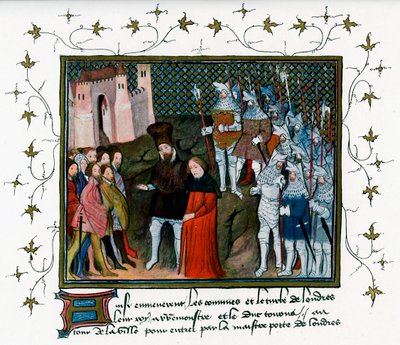 Ainsi enmenerent les communes et le turbe de londres
leur roy a wesmonstre et le duc tourna au
tour de la ville pour entrer par la maistre porte de londres